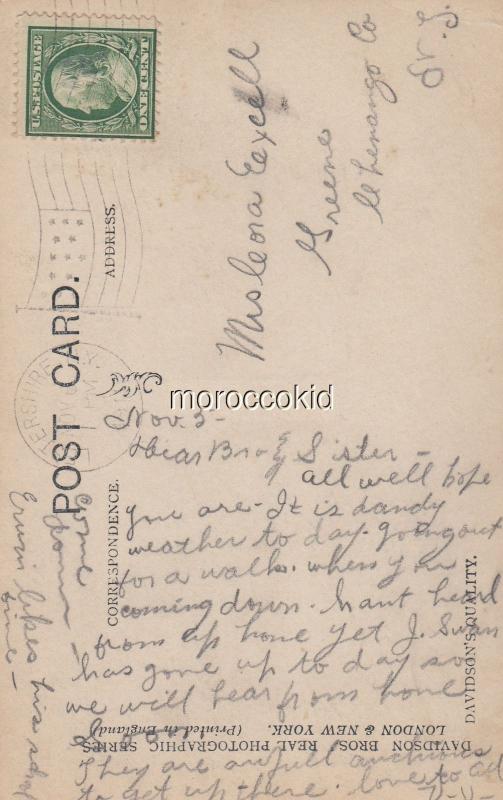 U.S. POSTAGE
ONE CENT
POST CARD.
ADDRESS.
CORRESPONDENCE.
Mrs Leora Excell
Greene
Chenango Co
N.Y.
moroccokid
Nov. 3-
Dear Bro & Sister -
all well hope
you are - It is dandy
weather to day. going out
for a walk. when you
coming down. hant heard
from up home yet J. Swan
has gone up to day so
we will hear from home
They are awfull anchious
to get up there. love to all
Come
down
Erwin likes his school
fine -
DAVIDSON BROS. REAL PHOTOGRAPHIC SERIES
LONDON & NEW YORK. (Printed in England)
DAVIDSON'S QUALITY.